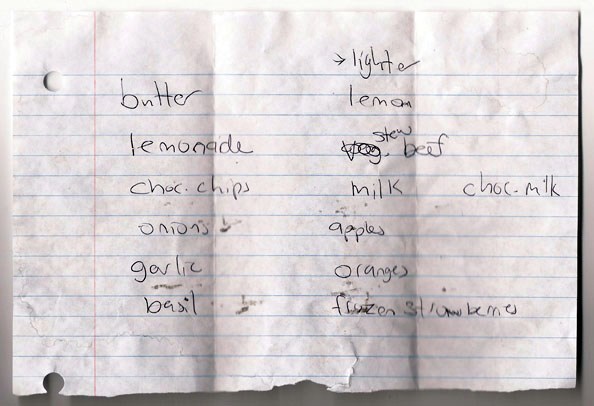 → lighter
butter lemon
lemonade stew beef
choc. chips milk choc. milk
onions apples
garlic oranges
basil frozen strawberries